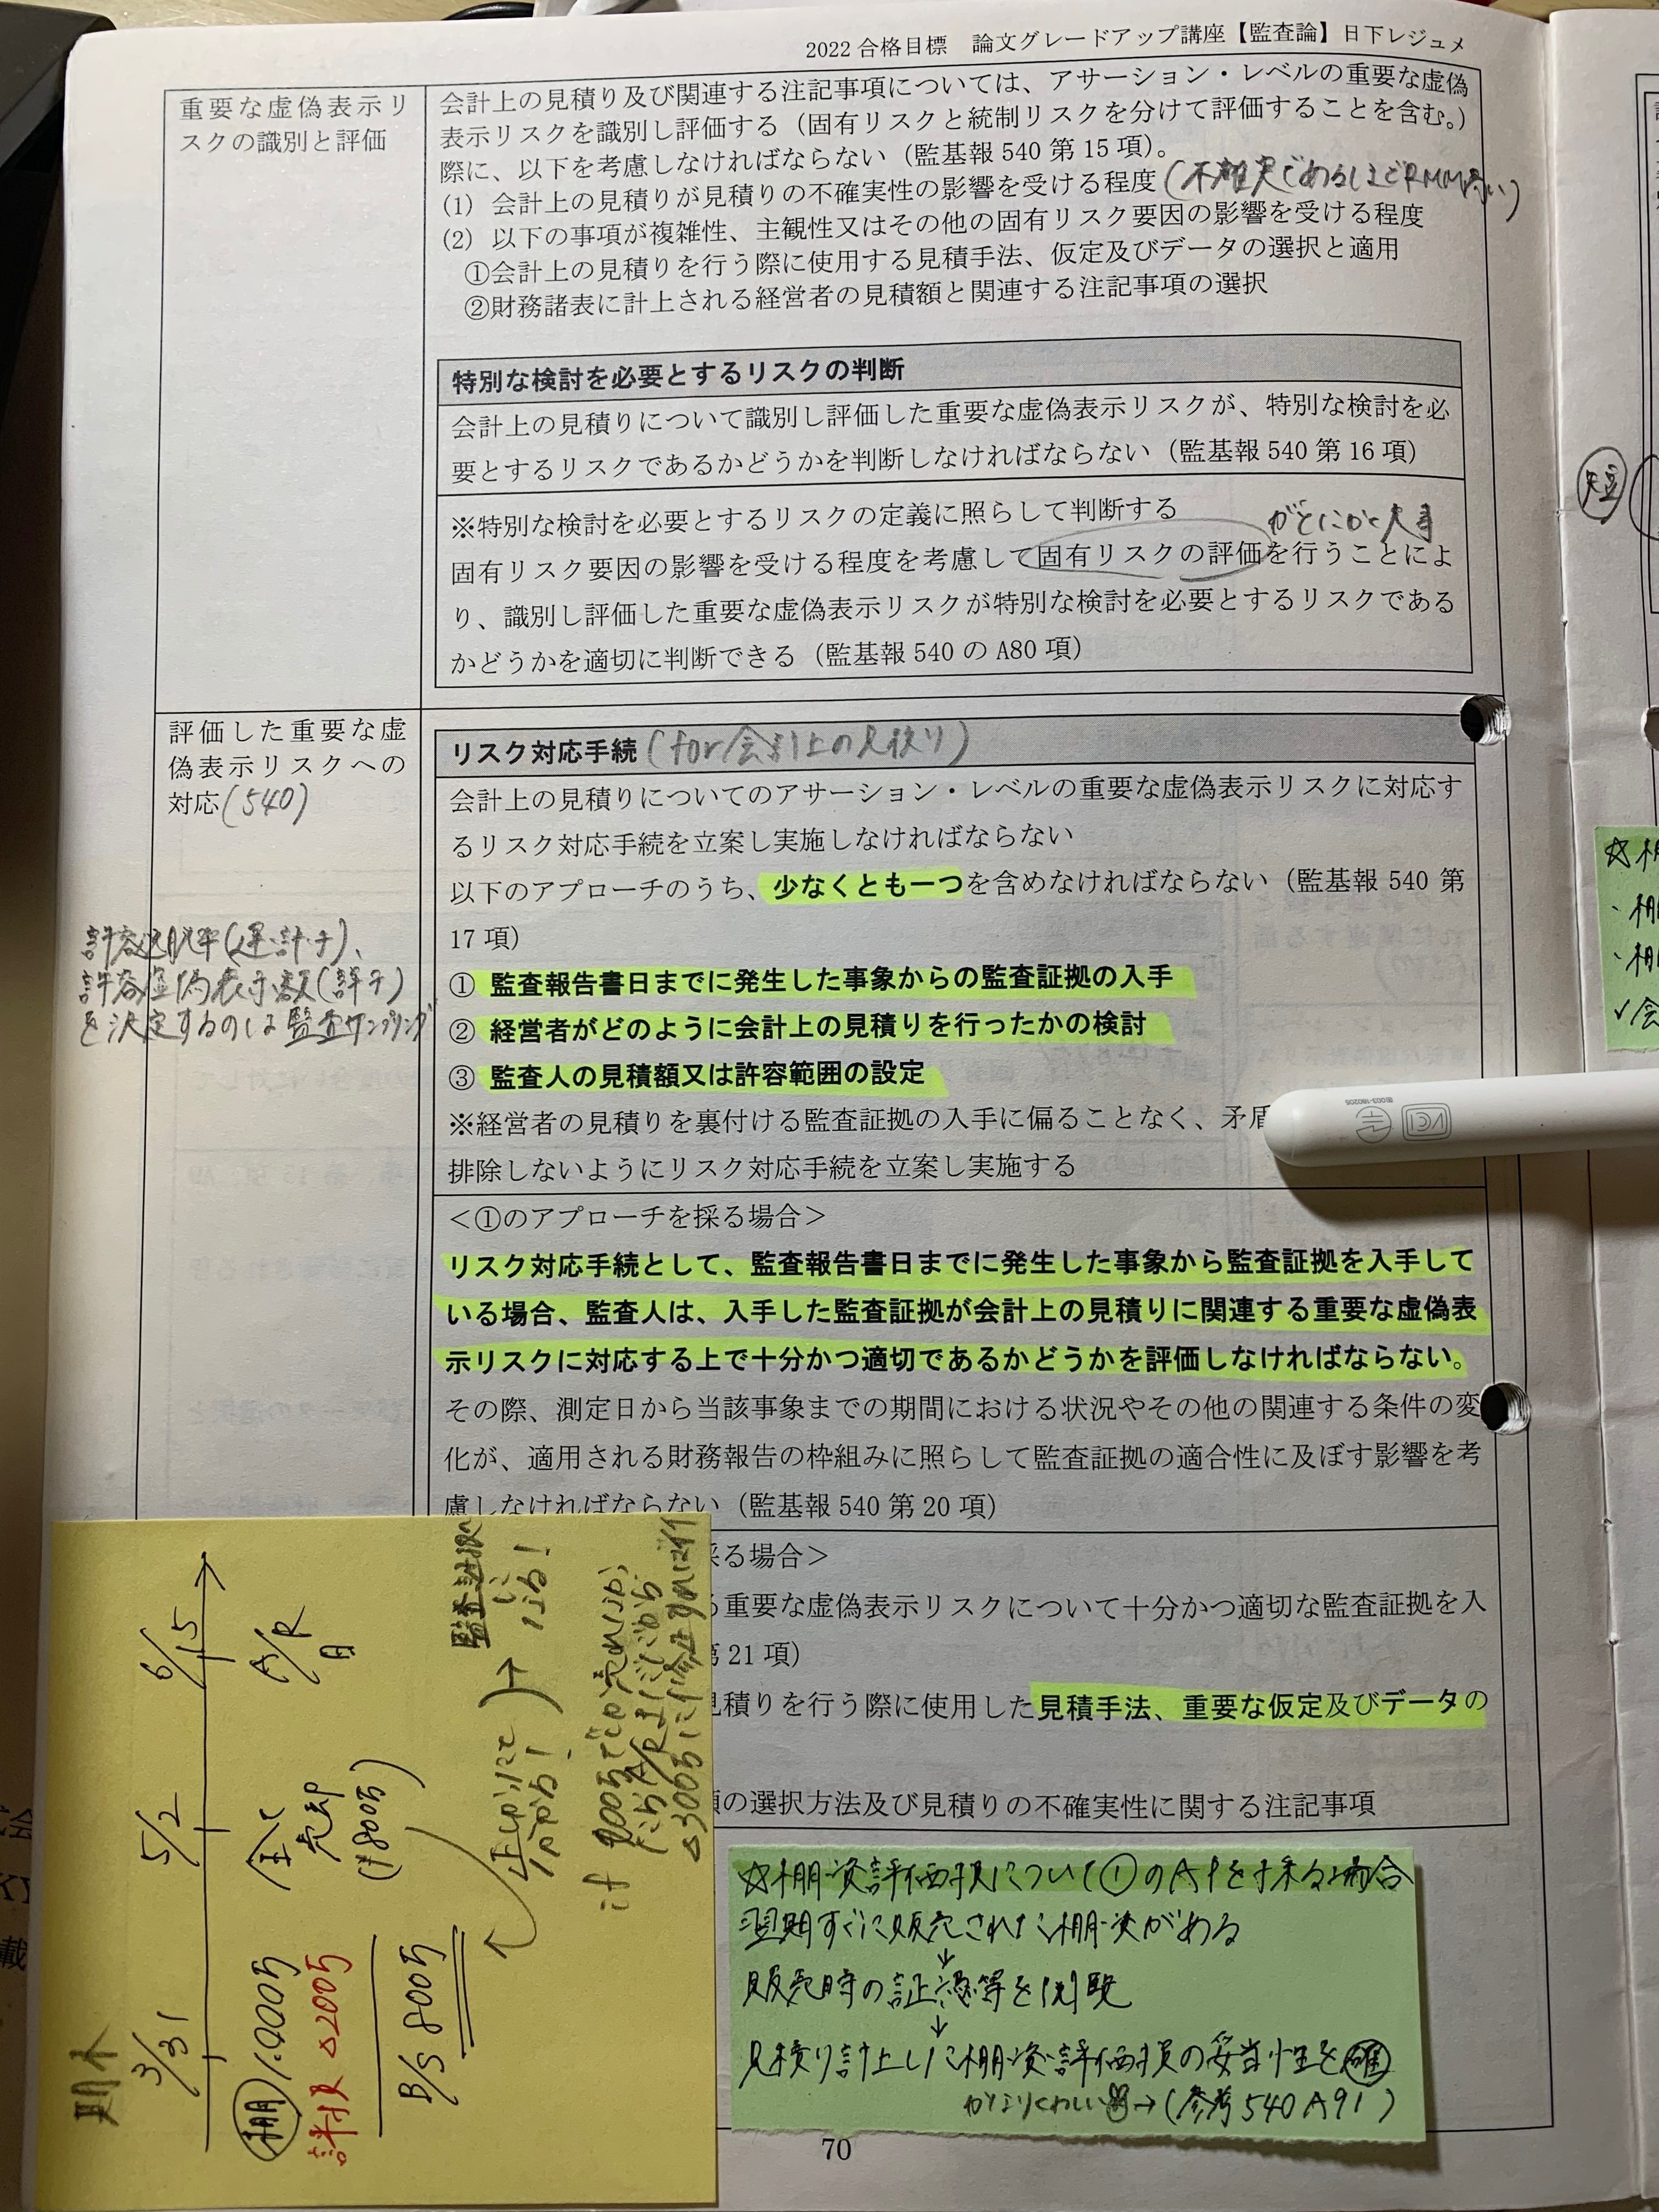 2022 合格目標　論文グレードアップ講座【監査論】日下レジュメ
重要な虚偽表示リ
スクの識別と評価
会計上の見積り及び関連する注記事項については、アサーション・レベルの重要な虚偽
表示リスクを識別し評価する（固有リスクと統制リスクを分けて評価することを含む。）
際に、以下を考慮しなければならない（監基報 540 第 15 項）。
(1) 会計上の見積りが見積りの不確実性の影響を受ける程度（不確実であるほどRMM高い）
(2) 以下の事項が複雑性、主観性又はその他の固有リスク要因の影響を受ける程度
①会計上の見積りを行う際に使用する見積手法、仮定及びデータの選択と適用
②財務諸表に計上される経営者の見積額と関連する注記事項の選択
特別な検討を必要とするリスクの判断
会計上の見積りについて識別し評価した重要な虚偽表示リスクが、特別な検討を必
要とするリスクであるかどうかを判断しなければならない（監基報 540 第 16 項）
※特別な検討を必要とするリスクの定義に照らして判断する
がとにかく大事
固有リスク要因の影響を受ける程度を考慮して固有リスクの評価を行うことによ
り、識別し評価した重要な虚偽表示リスクが特別な検討を必要とするリスクである
かどうかを適切に判断できる（監基報 540 の A80 項）
評価した重要な虚
偽表示リスクへの
対応(540)
リスク対応手続（for会計上の見積り）
会計上の見積りについてのアサーション・レベルの重要な虚偽表示リスクに対応す
るリスク対応手続を立案し実施しなければならない
以下のアプローチのうち、少なくとも一つを含めなければならない（監基報 540 第
17 項）
① 監査報告書日までに発生した事象からの監査証拠の入手
② 経営者がどのように会計上の見積りを行ったかの検討
③ 監査人の見積額又は許容範囲の設定
※経営者の見積りを裏付ける監査証拠の入手に偏ることなく、矛盾
排除しないようにリスク対応手続を立案し実施する
許容逸脱率(運・計・手)、
許容虚偽表示額(詳手)
を決定するのは監査サンプリング
＜①のアプローチを採る場合＞
リスク対応手続として、監査報告書日までに発生した事象から監査証拠を入手して
いる場合、監査人は、入手した監査証拠が会計上の見積りに関連する重要な虚偽表
示リスクに対応する上で十分かつ適切であるかどうかを評価しなければならない。
その際、測定日から当該事象までの期間における状況やその他の関連する条件の変
化が、適用される財務報告の枠組みに照らして監査証拠の適合性に及ぼす影響を考
慮しなければならない（監基報 540 第 20 項）
採る場合＞
重要な虚偽表示リスクについて十分かつ適切な監査証拠を入
第 21 項）
見積りを行う際に使用した見積手法、重要な仮定及びデータの
の選択方法及び見積りの不確実性に関する注記事項
期末
3/31
5/2
6/15
A/R
日
棚 1,000万
評損 △200万
B/S 800万
全て
売却
(+800万)
正しかったと
分かる!
監査証拠
に
なる!
☆棚資評価損について①のAPを採る場合
翌期すぐに販売された棚資がある
↓
販売時の証憑等を閲覧
↓
見積り計上した棚資評価損の妥当性を確
かなりくわしい→(参考540A91)
70